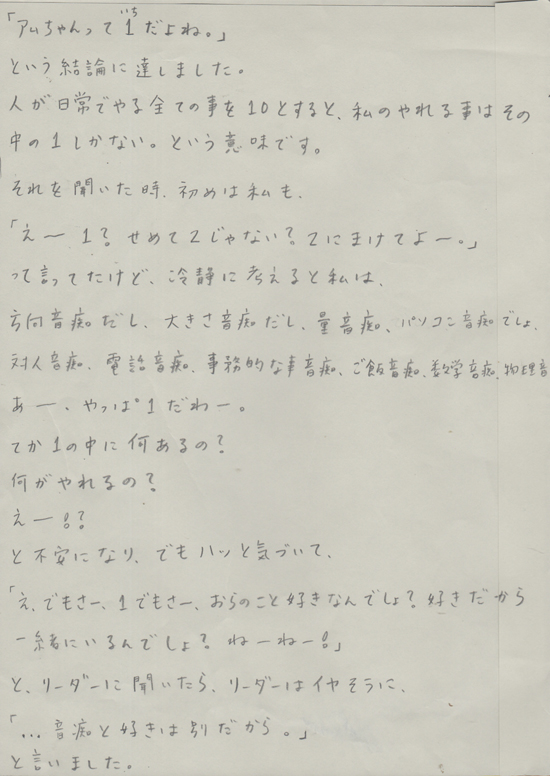 「アムちゃんって1だよね。」
いち
という結論に達しました。
人が日常でやる全ての事を10とすると、私のやれる事はその
中の1しかない。という意味です。
それを聞いた時、初めは私も、
「えー 1? せめて2じゃない? 2にまけてよー。」
って言ってたけど、冷静に考えると私は、
方向音痴だし、大きさ音痴だし、量音痴、パソコン音痴でしょ、
対人音痴、電話音痴、事務的な事音痴、ご飯音痴、数学音痴、物理音
あー、やっぱ1だわー。
てか1の中に何あるの?
何がやれるの?
えー!?
と不安になり、でもハッと気づいて、
「え、でもさー、1でもさー、おらのこと好きなんでしょ? 好きだから
一緒にいるんでしょ? ねーねー!」
と、リーダーに聞いたら、リーダーはイヤそうに、
「…音痴と好きは別だから。」
と言いました。